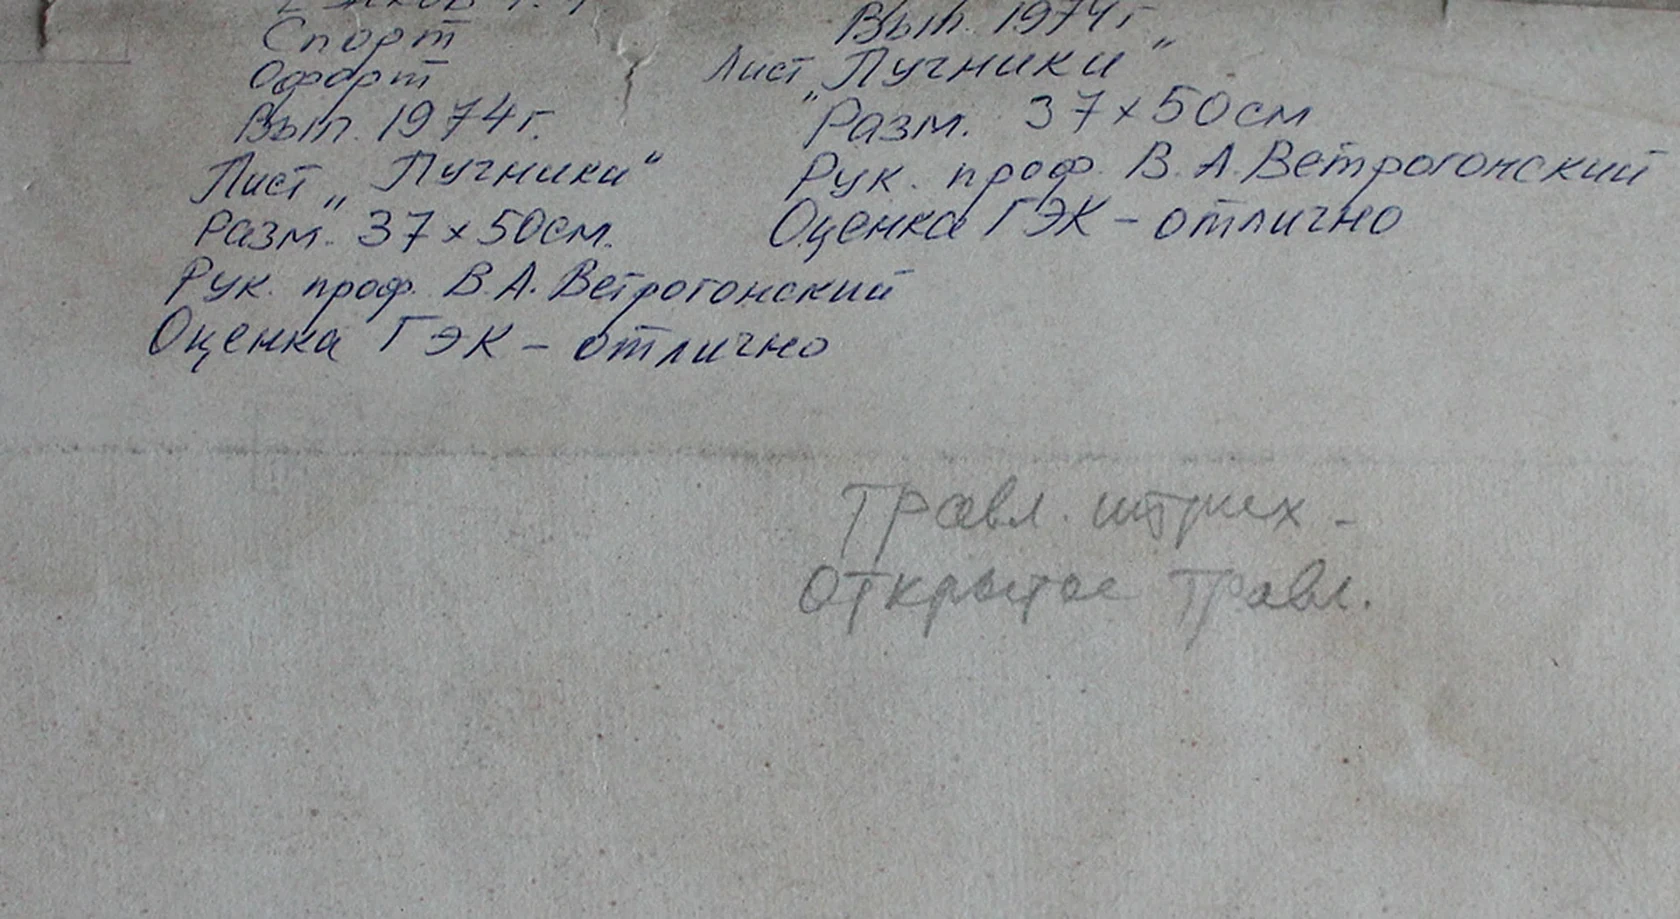 Спорт
Офорт
Вып. 1974 г.
Лист „Лучники“
Разм. 37 х 50см.
Рук. проф. В.А. Ветрогонский
Оценка ГЭК – отлично
Вып. 1974 г
Лист „Лучники“
Разм. 37 х 50см
Рук. проф. В.А. Ветрогонский
Оценка ГЭК – отлично
Травл. штрих -
открытое травл.